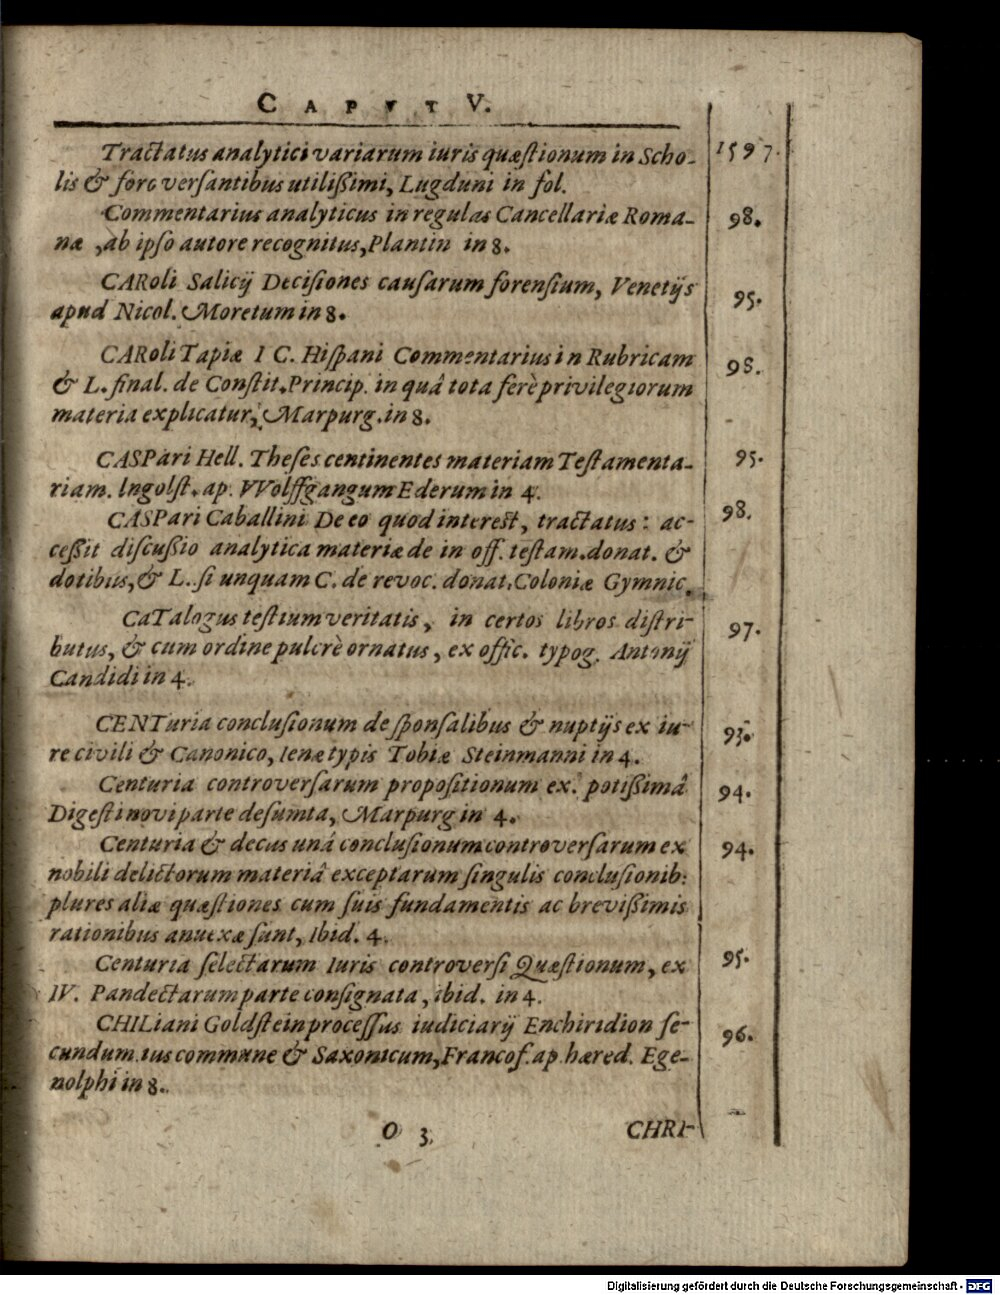 CAPVT V.
Tractatus analytici variarum iuris quæstionum in Scho- 1597.
lis & foro versantibus utilißimi, Lugduni in fol.
Commentarius analyticus in regulas Cancellariæ Roma- 98.
næ, ab ipso autore recognitus, Plantin in 8.
CARoli Salicij Decisiones causarum forensium, Venetijs 95.
apud Nicol. Moretum in 8.
CARoli Tapiæ I C. Hispani Commentarius in Rubricam 98.
& L. final. de Constit. Princip. in quâ tota ferè privilegiorum
materia explicatur, Marpurg. in 8.
CASPari Hell. Theses centinentes materiam Testamenta- 95.
riam. Ingolst. ap. VVolffgangum Ederum in 4.
CASPari Caballini De eo quod interest, tractatus: ac- 98.
ceßit discußio analytica materiæ de in off. testam. donat. &
dotibus, & L. si unquam C. de revoc. donat. Coloniæ Gymnic.
CaTalogus testium veritatis, in certos libros distri- 97.
butus, & cum ordine pulcrè ornatus, ex offic. typog. Antonij
Candidi in 4.
CENTuria conclusionum de sponsalibus & nuptijs ex iu- 93.
re civili & Canonico, Ienæ typis Tobiæ Steinmanni in 4.
Centuria controversarum propositionum ex potißimâ 94.
Digesti novi parte desumta, Marpurg in 4.
Centuria & decas unâ conclusionum controversarum ex 94.
nobili delictorum materiâ exceptarum singulis conclusionib:
plures aliæ quæstiones cum suis fundamentis ac brevißimis
rationibus annexæ sunt, Ibid. 4.
Centuria selectarum Iuris controversi Quæstionum, ex 95.
IV. Pandectarum parte consignata, ibid. in 4.
CHILiani Goldstein processus iudiciarij Enchiridion se- 96.
cundum ius commune & Saxonicum, Francof. ap. hæred. Ege-
nolphi in 8.
O 3 CHRI-
Digitalisierung gefördert durch die Deutsche Forschungsgemeinschaft - DFG